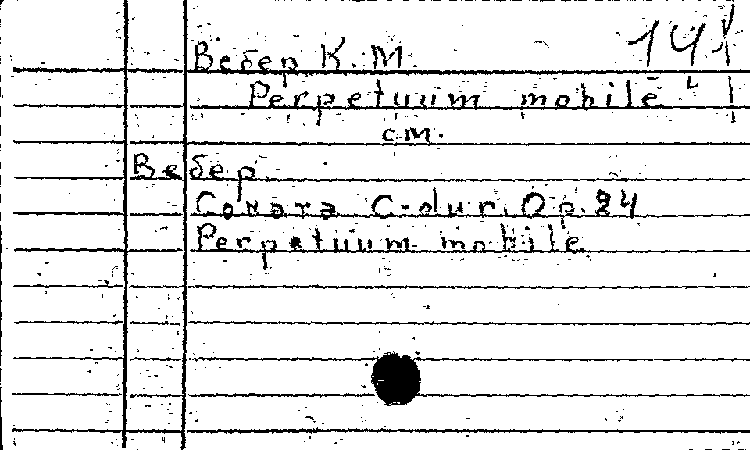 Вебер К. М. 141
Perpetuum mobile
см.
Вебер
Соната C-dur. Op. 24
Perpetuum mobile